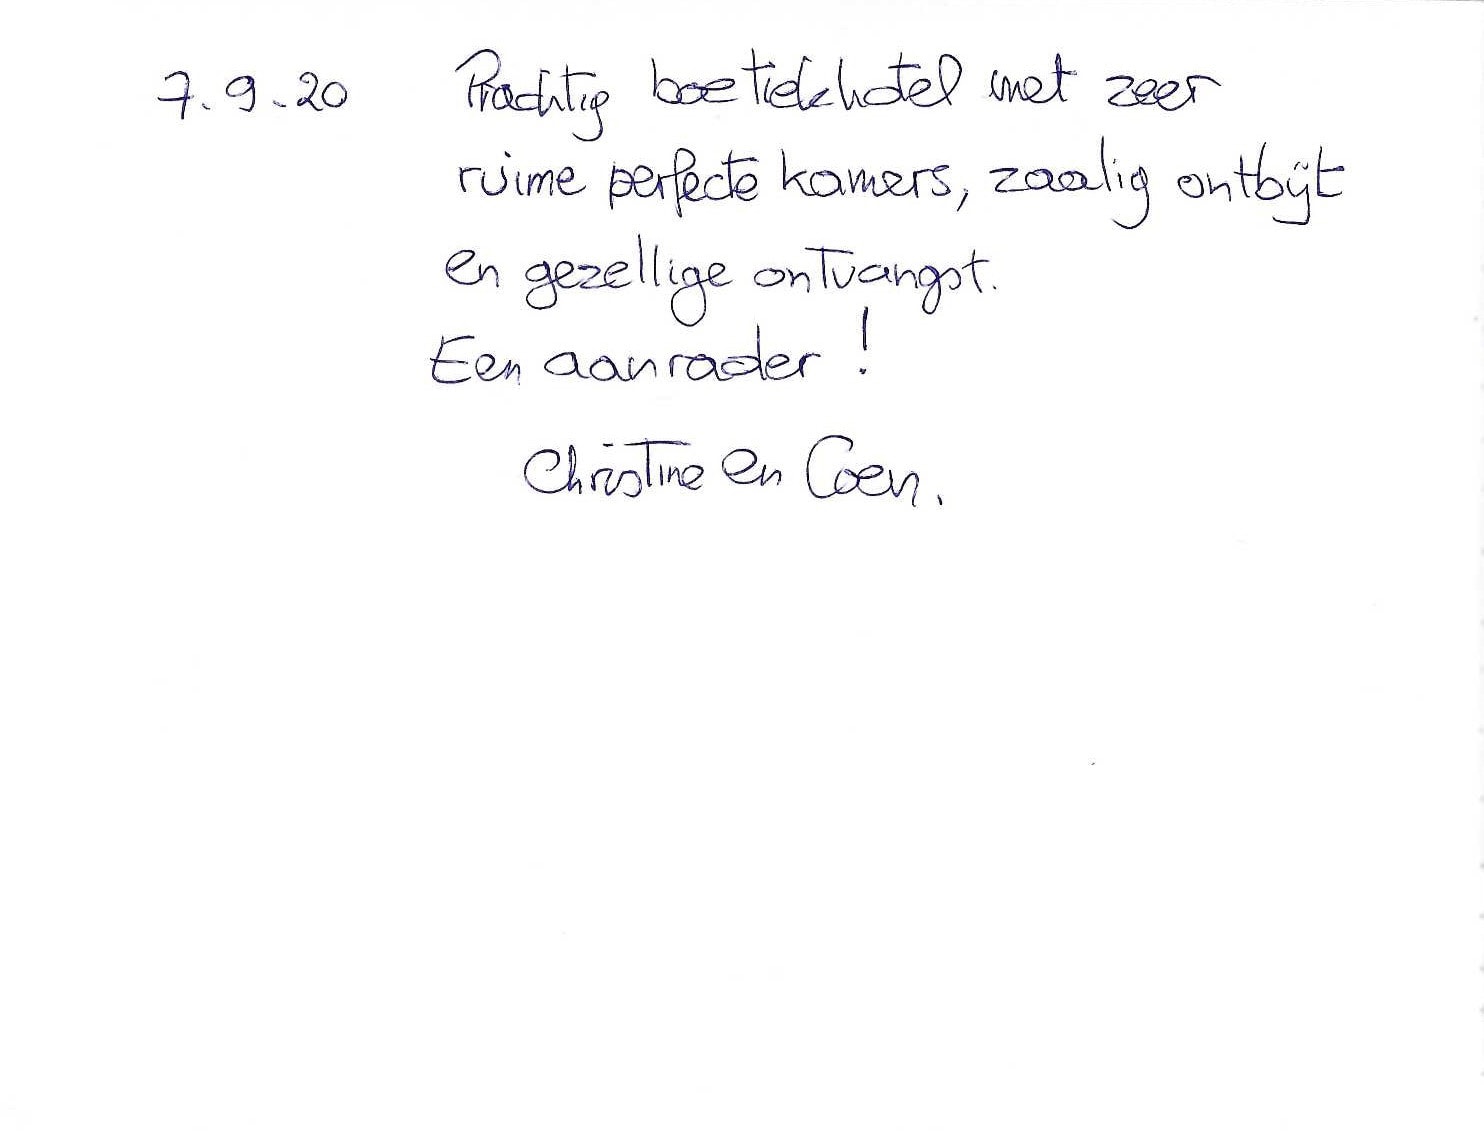 7.9.20 Prachtig boetiekhotel met zeer
ruime perfecte kamers, zaalig ontbijt
en gezellige ontvangst.
Een aanrader !
Christine en Coen.